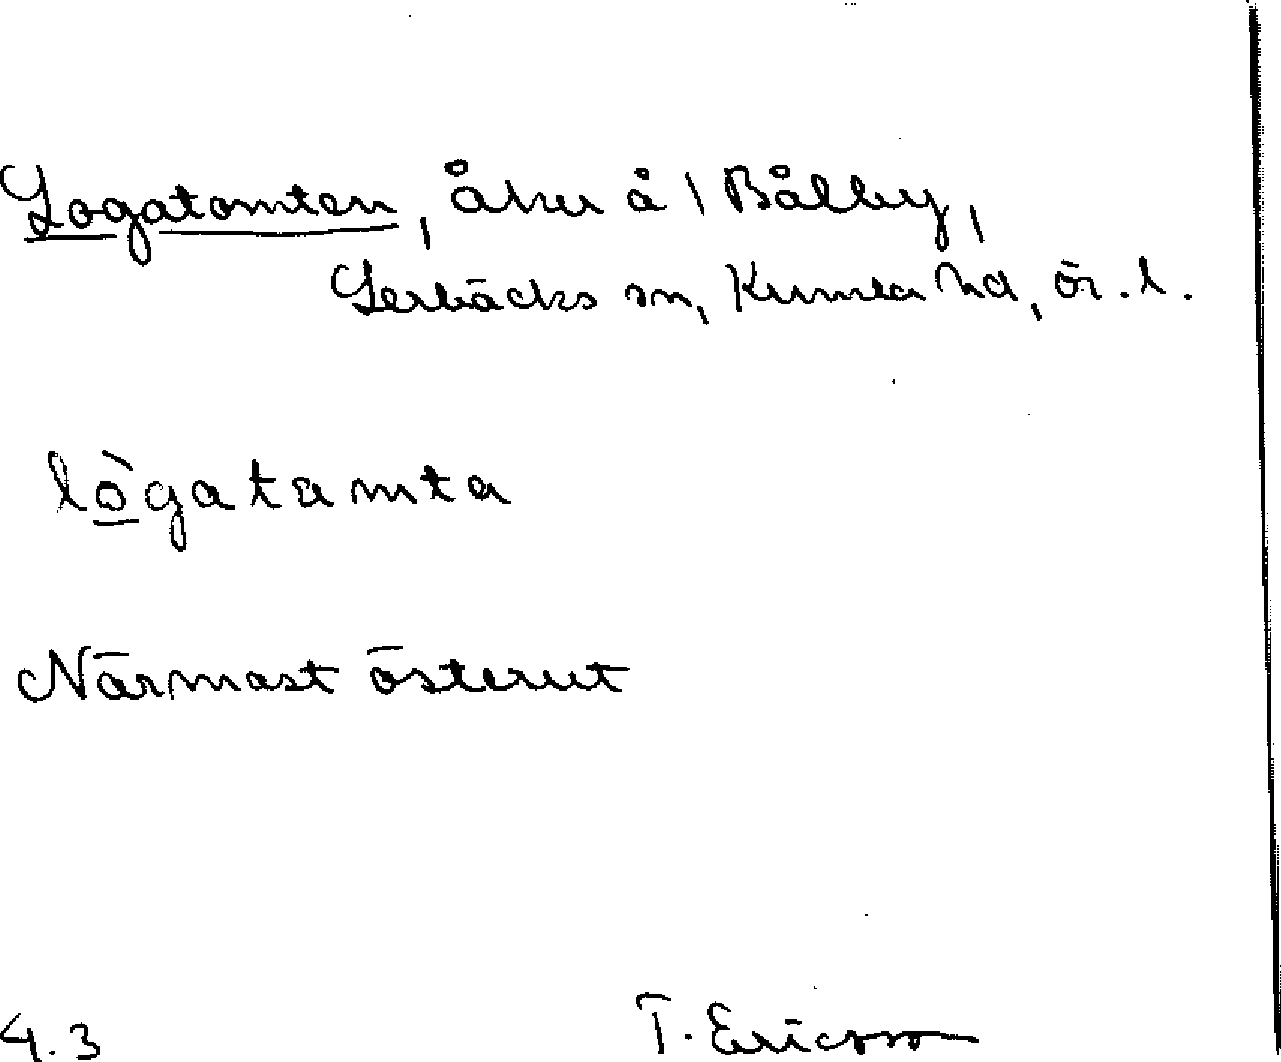 Logatomten, åker å 1 Bålby,
Lerbäcks sn, Kumla hd, ör. l.
lò̲gatamta
Närmast österut
4.3
T. Ericsson